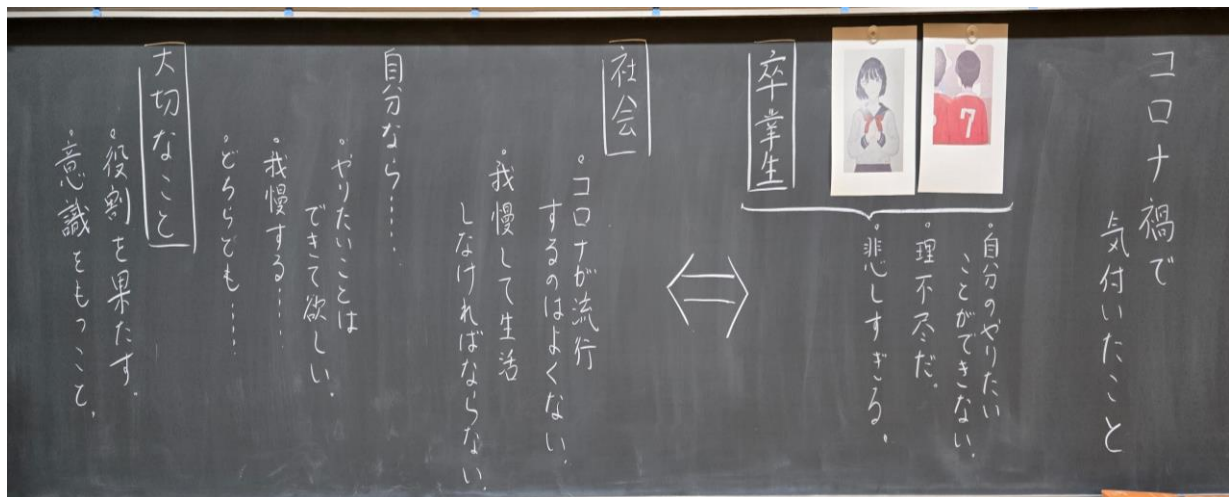 コロナ禍で
気付いたこと
7
卒業生
・自分のやりたい
ことができない。
・理不尽だ。
・悲しすぎる。
社会
・コロナが流行
するのはよくない。
・我慢して生活
しなければならない。
自分なら……
・やりたいことは
できて欲しい。
・我慢する……
・どちらでも……
大切なこと
・役割を果たす。
・意識をもつこと。